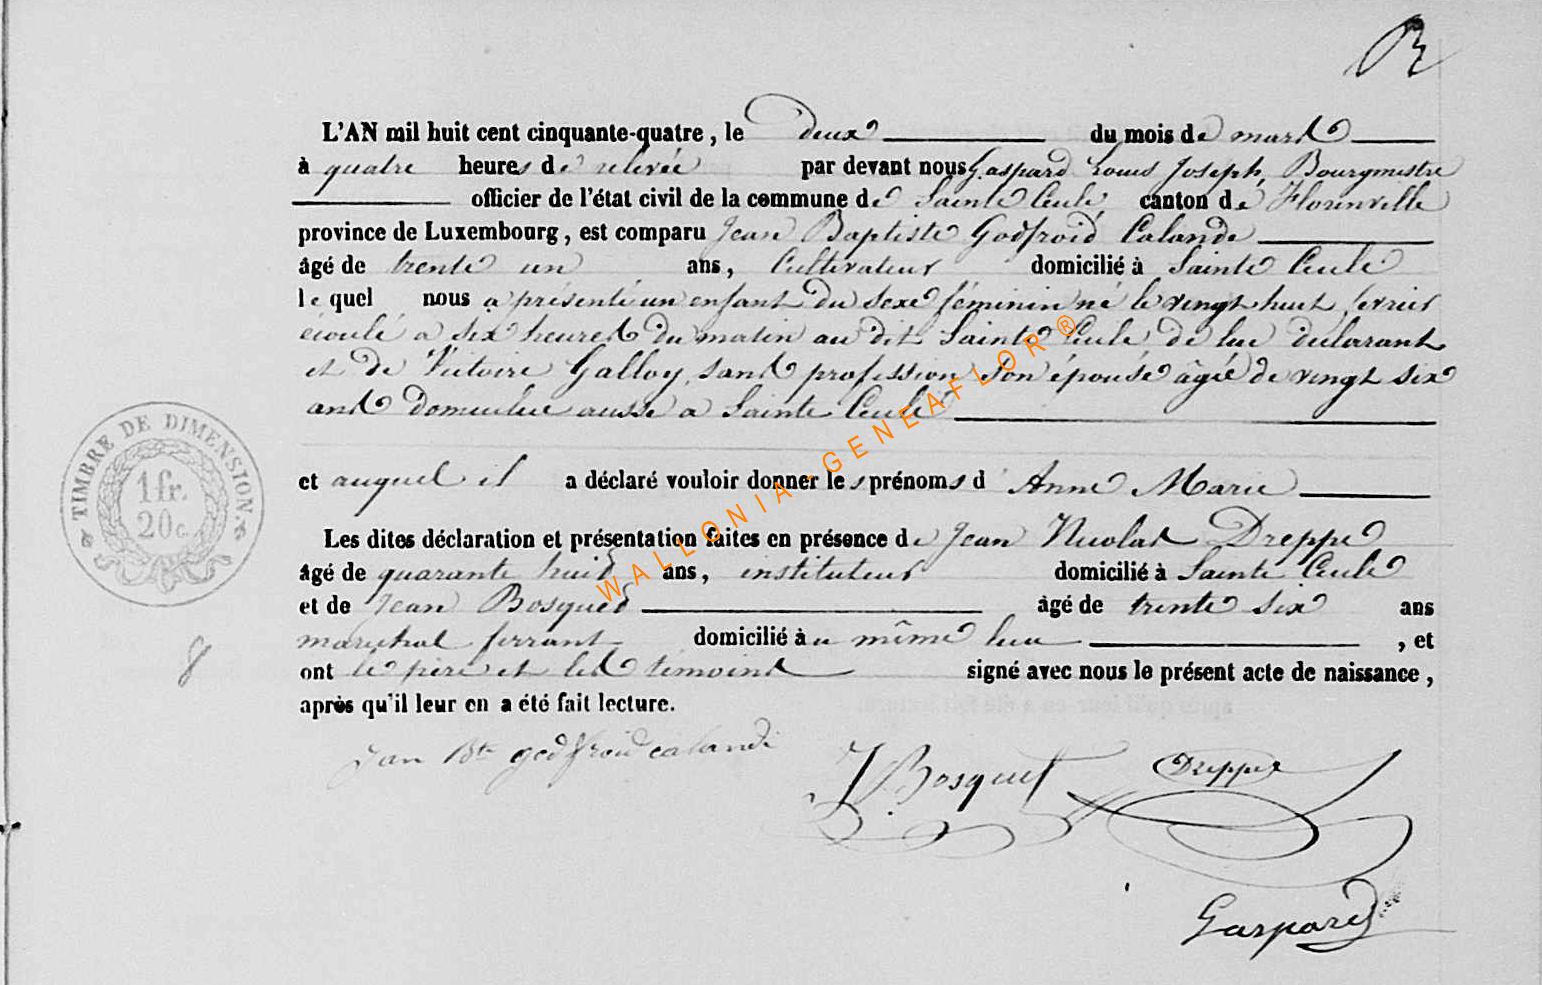 L'AN mil huit cent cinquante-quatre, le deux du mois de mars
à quatre heures de relevée par devant nous Gaspard Louis Joseph, Bourgmestre
officier de l'état civil de la commune de Sainte Cecile canton de Florenville
province de Luxembourg, est comparu Jean Baptiste Godfroid Calande
âgé de trente un ans, Cultivateur domicilié à Sainte Cecile
le quel nous a présenté un enfant du sexe féminin né le vingt huit fevrier
écoulé a six heures du matin au dit Sainte Cecile de lui déclarant
et de Victoire Galloy, sans profession son épouse âgée de vingt six
ans domiciliée aussi a Sainte Cecile
et auquel il a déclaré vouloir donner les prénoms d' Anne Marie
TIMBRE DE DIMENSION.
1 fr.
20 c.
Les dites déclaration et présentation faites en présence de Jean Nicolas Dreppe
âgé de quarante huit ans, instituteur domicilié à Sainte Cecile
et de Jean Bosquet âgé de trente six ans
maréchal ferrant domicilié à u même lieu , et
ont le père et les témoins signé avec nous le présent acte de naissance,
après qu'il leur en a été fait lecture.
8
jan Bte godfroid calande
J Bosquet Dreppe
Gaspard
WALLONIA-GENEAFLOR®